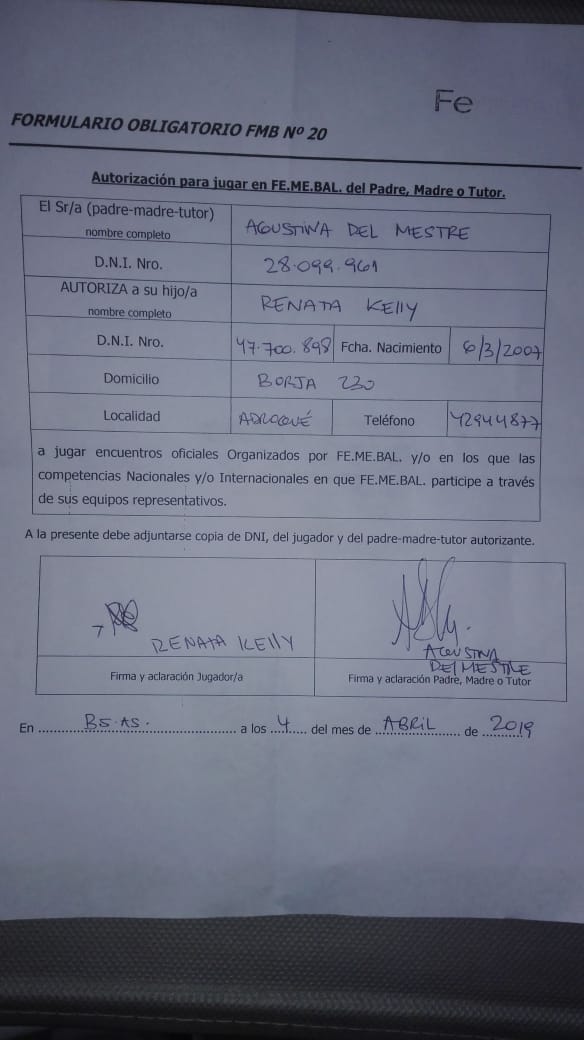 Fe
FORMULARIO OBLIGATORIO FMB Nº 20
Autorización para jugar en FE.ME.BAL. del Padre, Madre o Tutor.
El Sr/a (padre-madre-tutor)
nombre completo
AGUSTINA DEL MESTRE
D.N.I. Nro.
28.099.961
AUTORIZA a su hijo/a
nombre completo
RENATA KELLY
D.N.I. Nro.
47.700.898
Fcha. Nacimiento
6/3/2007
Domicilio
BORJA 230
Localidad
ADROGUÉ
Teléfono
42944877
a jugar encuentros oficiales Organizados por FE.ME.BAL. y/o en los que las
competencias Nacionales y/o Internacionales en que FE.ME.BAL. participe a través
de sus equipos representativos.
A la presente debe adjuntarse copia de DNI, del jugador y del padre-madre-tutor autorizante.
RENATA KELLY
AGUSTINA
DEL MESTRE
Firma y aclaración Jugador/a
Firma y aclaración Padre, Madre o Tutor
En BS.AS. a los 4 del mes de ABRIL de 2019